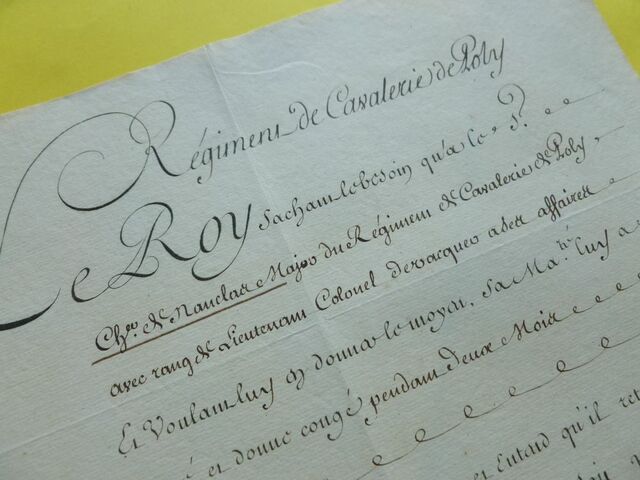 Régiment de Cavalerie de Poly
Le Roy sachant le besoin qu'a le S.r
Ch.er de Nauclas Major du Régiment de Cavalerie de Poly,
avec rang de Lieutenant Colonel de vacquer a ses affaires
Et Voulant luy en donner le moyen, Sa Ma.té luy a
et donne congé pendant deux Mois
et Entend qu'il